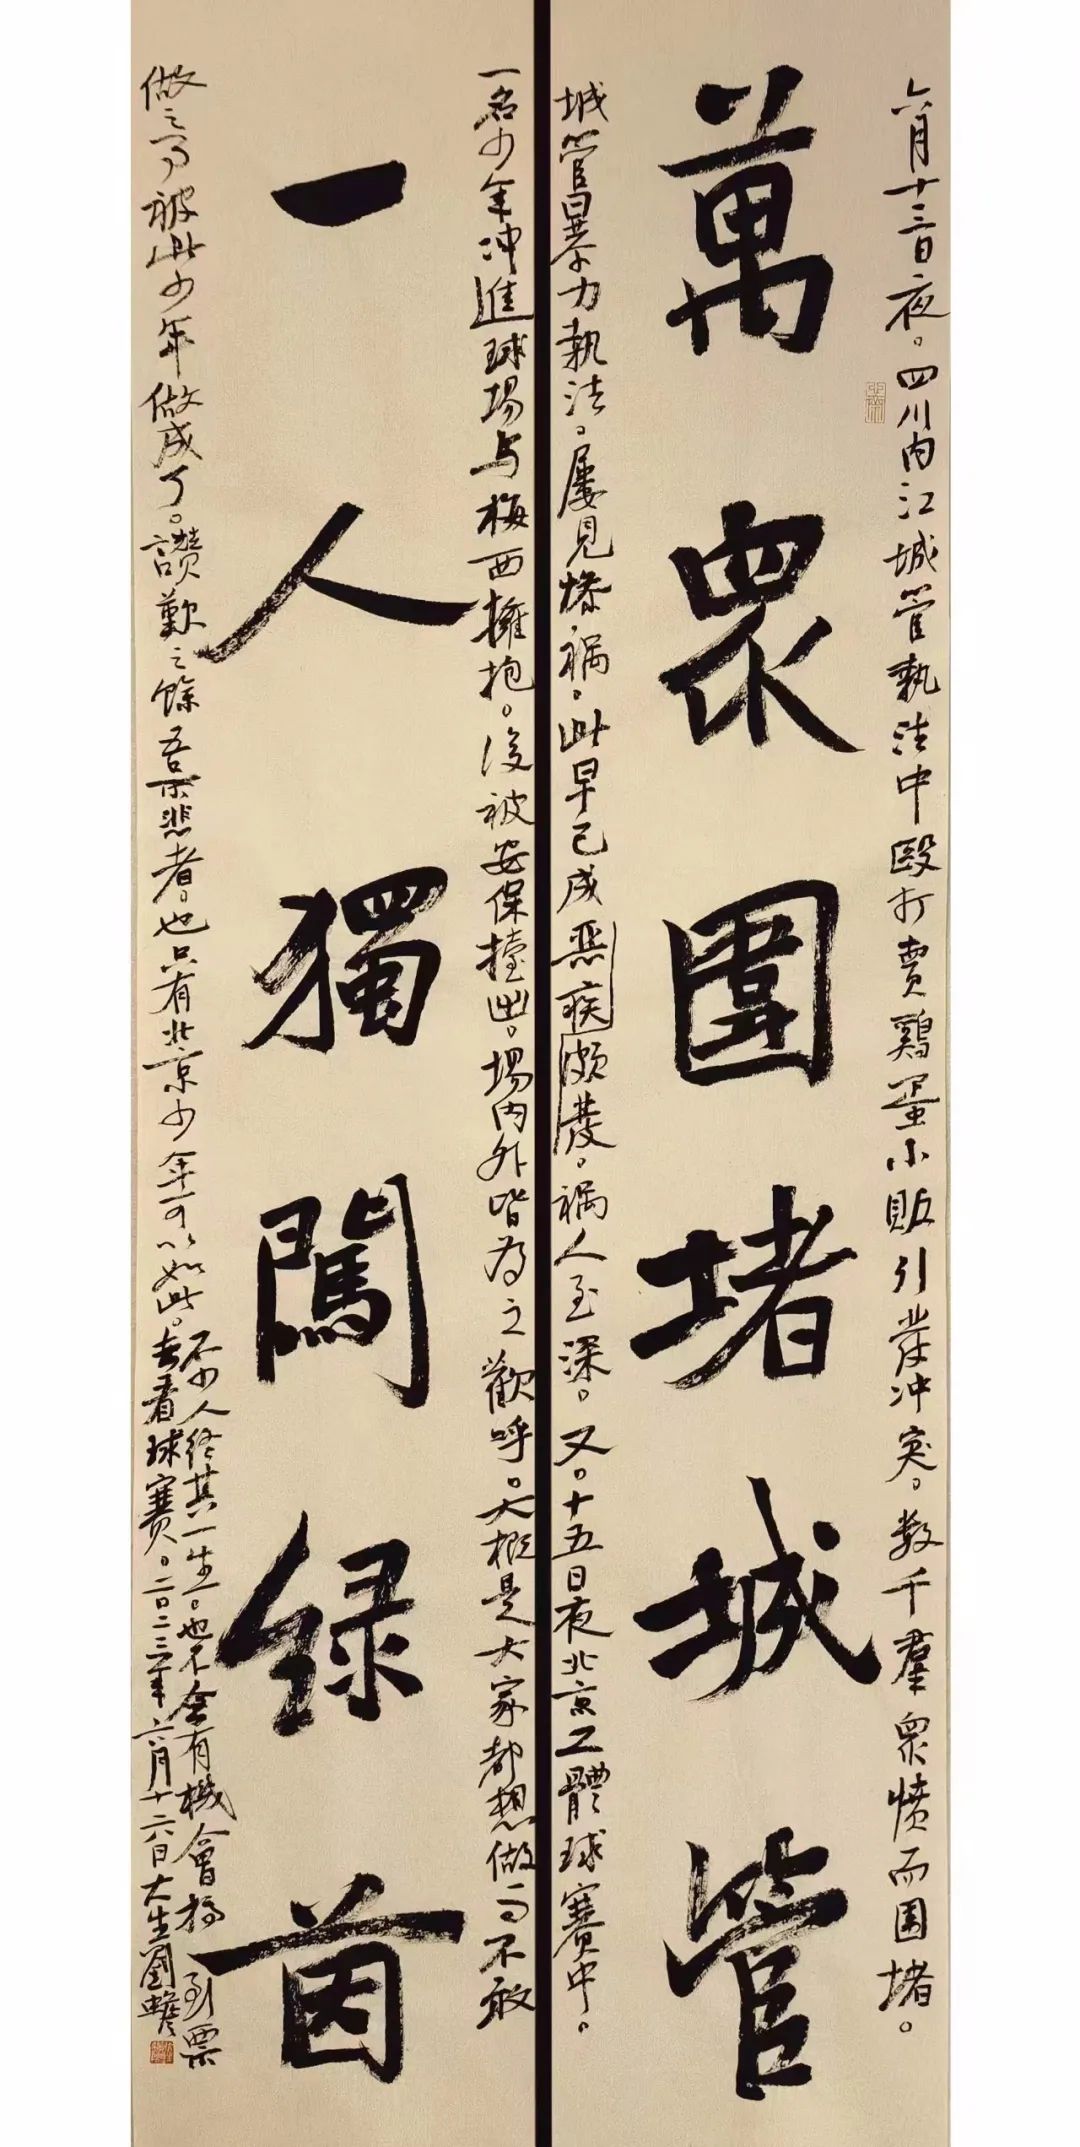 六月十三日夜。四川内江城管執法中毆打賣鷄蛋小販引發冲突。数千羣衆憤而围堵。
萬眾圍堵城管
城管暴力執法。屢見惨祸。此早已成恶疾發。祸人至深。又。十五日夜北京工體球賽中。
一名少年冲進球場与梅西擁抱。後被安保擡出。場内外皆为之歡呼。大概是大家都想做而不敢
一人獨闖绿茵
做之事被此少年做成了。讃歎之餘吾亦悲者。也只有北京少年可以如此。
不少人终其一生。也不会有機會搞到票
去看球賽。二〇二三年六月十六日大生劉蟾